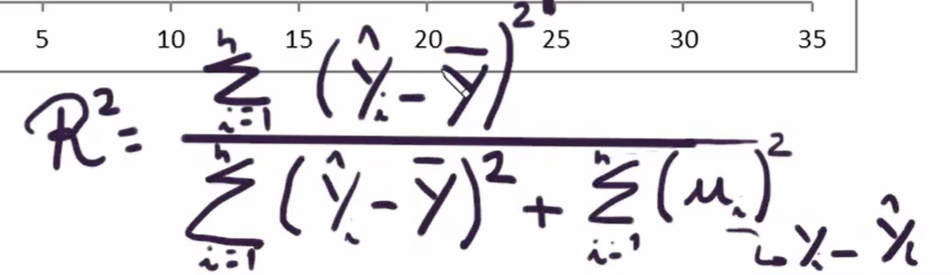 5 10 15 20 25 30 35
R² = \frac{\sum_{i=1}^{n} (\hat{Y}_i - \bar{Y})^2}{\sum_{i=1}^{n} (\hat{Y}_i - \bar{Y})^2 + \sum_{i=1}^{n} (u_i)^2}
↳ Y_i - \hat{Y}_i